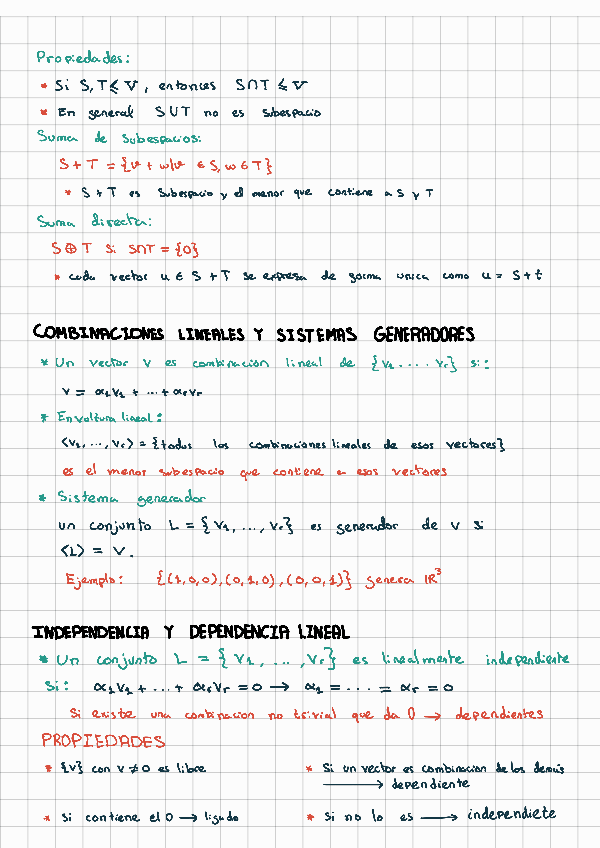 Propiedades:
* Si S, T ⩽ V, entonces S∩T ⩽ V
* En general S∪T no es subespacio
Suma de Subespacios:
S + T = {v + w/v ∈ S, w ∈ T}
* S + T es Subespacio y el menor que contiene a S y T
Suma directa:
S ⊕ T si S∩T = {0}
* cada vector u ∈ S + T se expresa de forma unica como u = s + t
COMBINACIONES LINEALES Y SISTEMAS GENERADORES
* Un vector v es combinación lineal de {v₁ .... vᵣ} si:
v = α₁v₁ + ... + αᵣvᵣ
* Envoltura lineal:
⟨v₁, ..., vᵣ⟩ = {todas las combinaciones lineales de esos vectores}
es el menor subespacio que contiene a esos vectores
* Sistema generador
un conjunto L = {v₁, ..., vᵣ} es generador de V si
⟨L⟩ = V.
Ejemplo: {(1,0,0),(0,1,0),(0,0,1)} genera ℝ³
INDEPENDENCIA Y DEPENDENCIA LINEAL
* Un conjunto L = {v₁, ..., vᵣ} es linealmente independiente
si: α₁v₁ + ... + αᵣvᵣ = 0 → α₁ = .... = αᵣ = 0
Si existe una combinacion no trivial que da 0 → dependientes
PROPIEDADES
* {v} con v ≠ 0 es libre
* Si un vector es combinacion de los demás
→ dependiente
* Si contiene el 0 → ligado
* Si no lo es → independiete